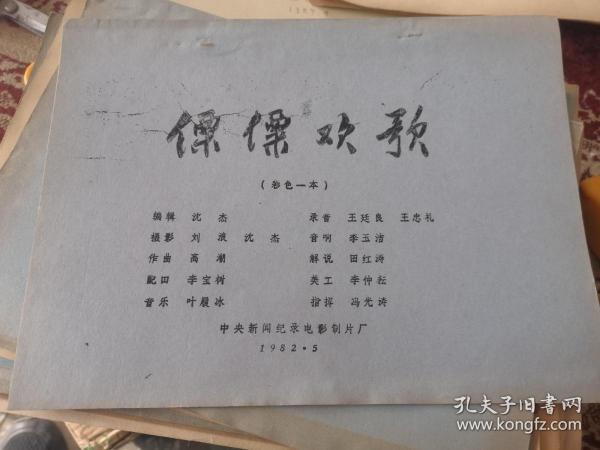 傈僳欢歌
(彩色一本)
编辑 沈杰 录音 王廷良 王忠礼
摄影 刘浪 沈杰 音响 李玉洁
作曲 高潮 解说 田红涛
配田 李宝树 美工 李仲耘
音乐 叶履冰 指挥 冯光涛
中央新闻纪录电影制片厂
1982·5
孔夫子旧书网
www.kongfz.com